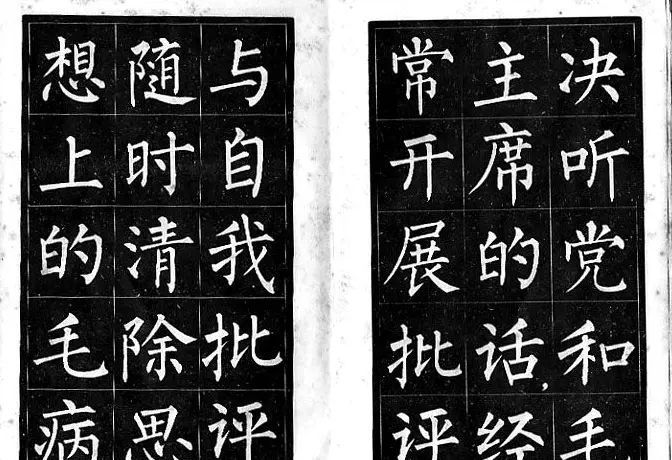 决听党和毛
主席的话，经
常开展批评
与自我批评
随时清除思
想上的毛病